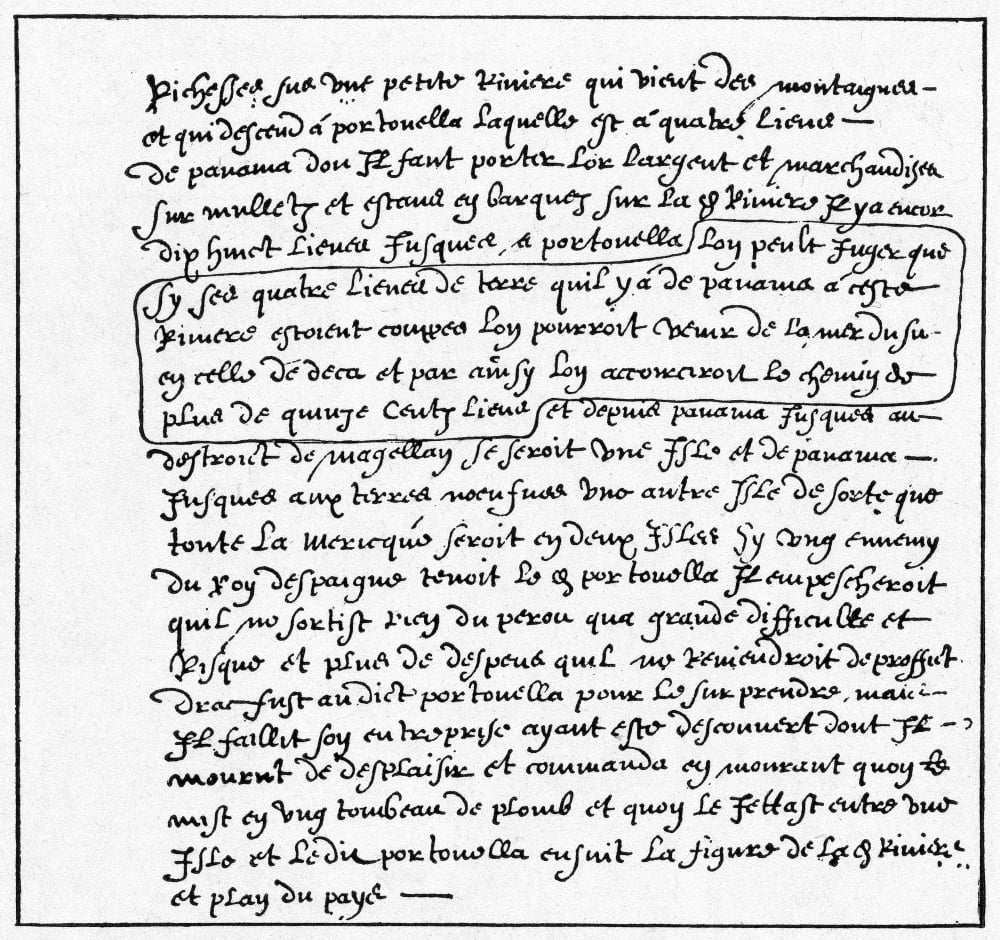 Richesses sus vne petite Riviere qui vient des montaignes
et qui descend á portouella laquelle est á quatre lieues
de panama dou Il fault porter lor largent et marchandises
sur mulletz et estans en barquez sur la d Riviere Il y a encor
dix huict lieues Jusques a portouella lon peult Juger que
sy ses quatre lieues de terre quil y á de panama á ceste
Riviere estoient couppes lon pourroit venir de la mer du su
en celle de deca et par ainsy lon accourciroit le chemin de
plus de quinze centz lieues et depuis panama Jusques au
destroict de magellan se seroit vne Isle et de panama
Jusques aux terres noeufues vne autre Isle de sorte que
toute la mericque seroit en deux Isles sy vng ennemy
du Roy despaigne tenoit le d portouella Il empescheroit
quil ne sortist rien du perou qua grande difficulte et
Risque et plus de despens quil ne Reviendroit de proffict
drac fust au dict portouella pour le surprendre mais
Il faillit son entreprise ayant este descouvert dont Il
mourut de desplaisir et commanda en mourant quon le
mist en vng tombeau de plomb et quon le Jettast entre vne
Isle et le dit portouella ensuit la figure de la d Riviere
et plan du pays